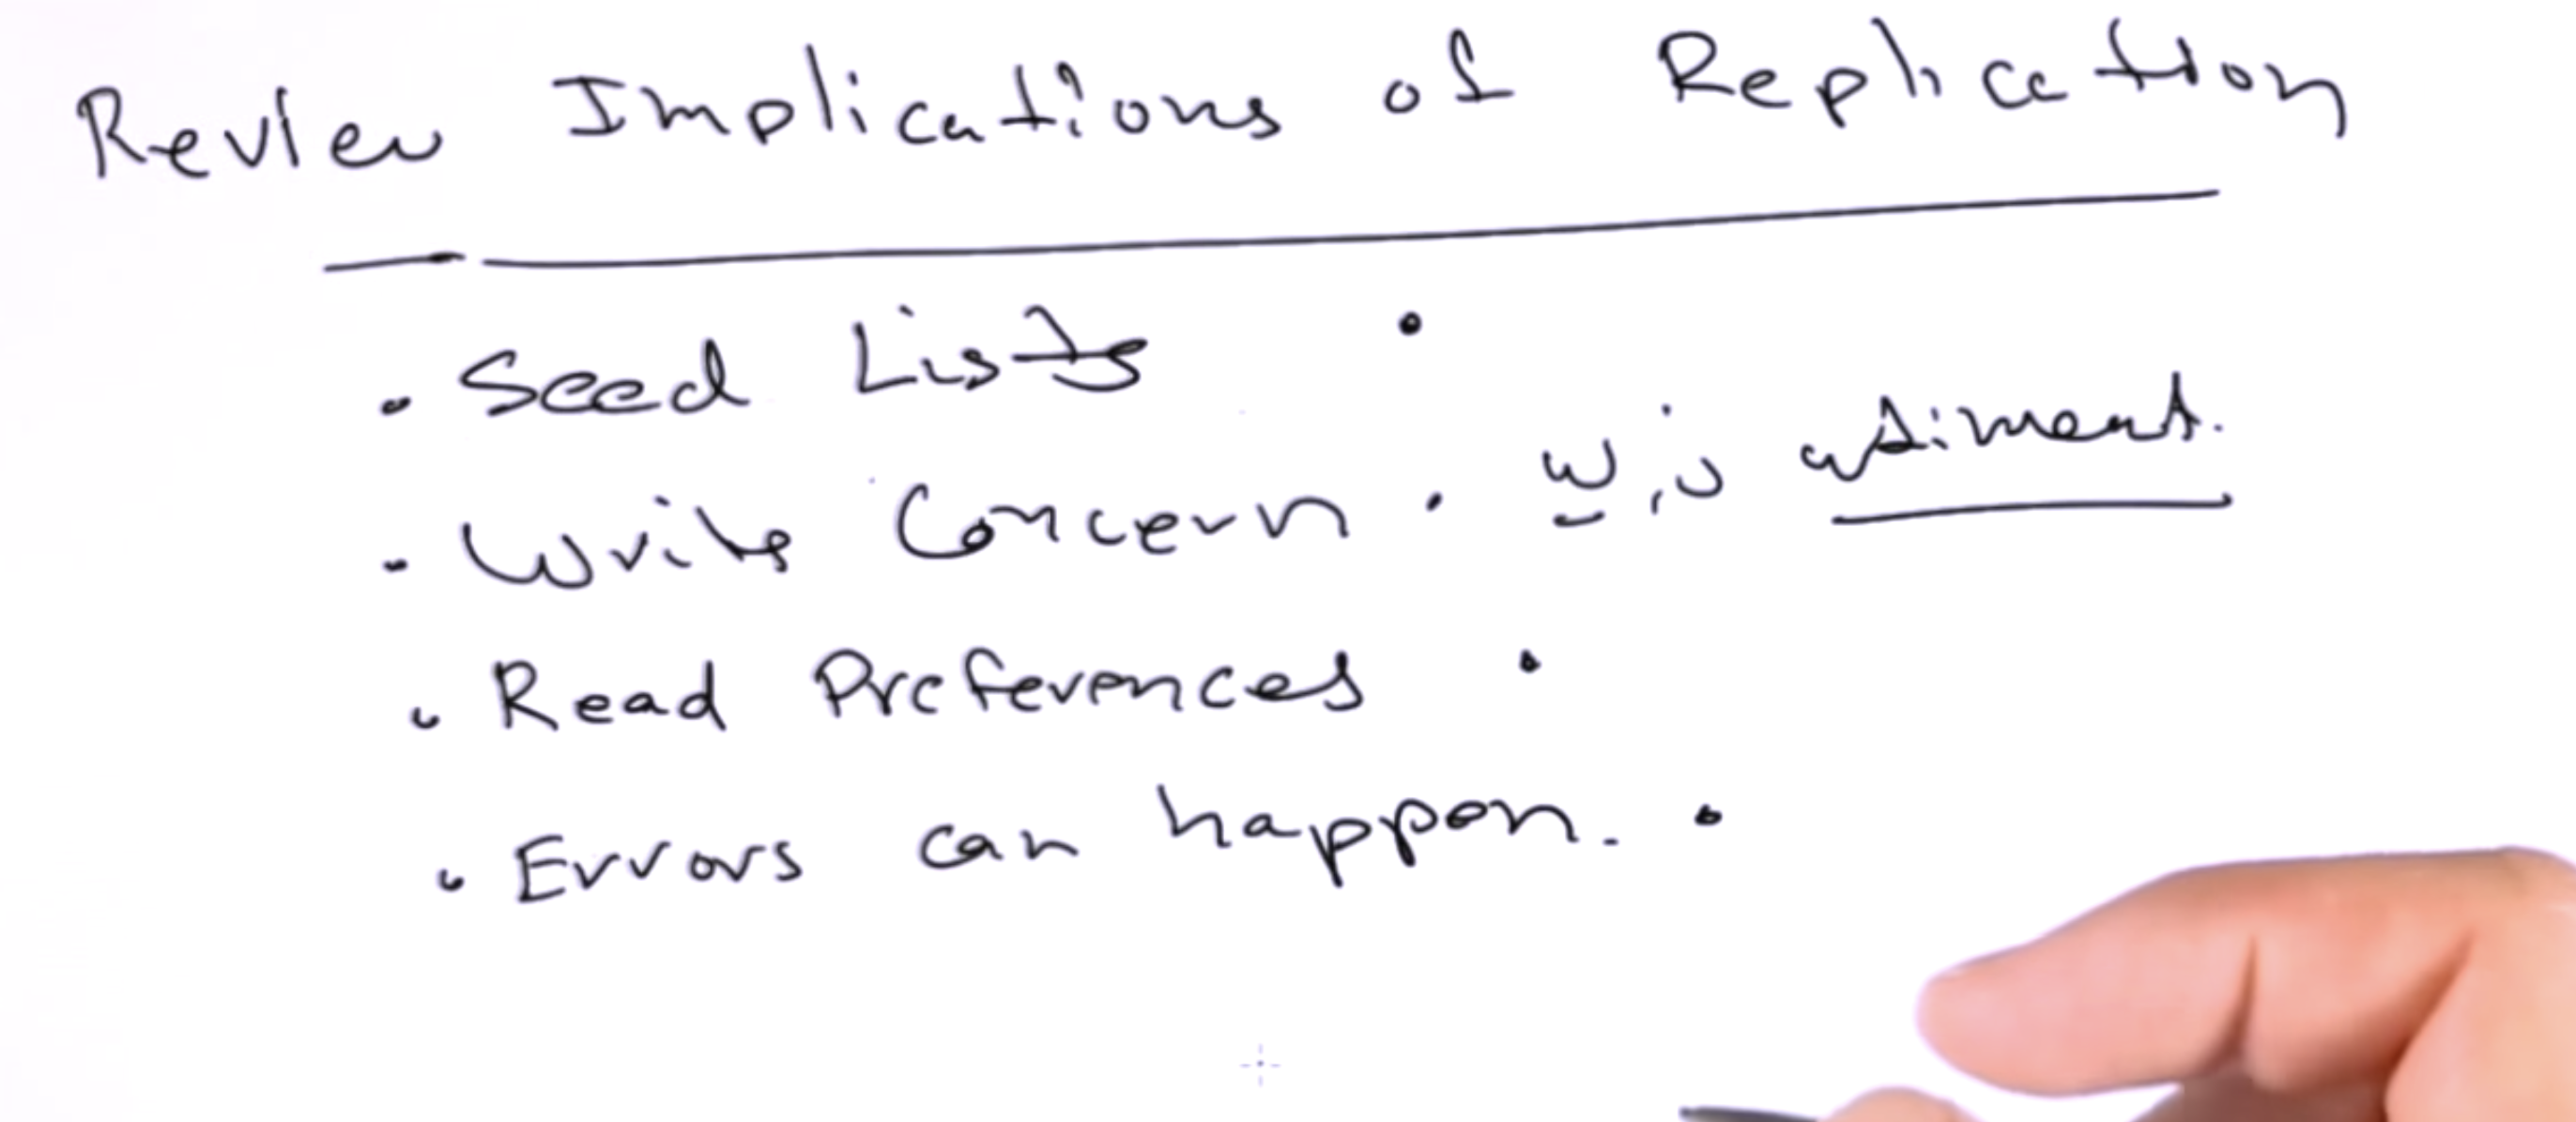 Review Implications of Replication
• Seed Lists •
• Write Concern • w, j wtimeout.
• Read Preferences •
• Errors can happen. •